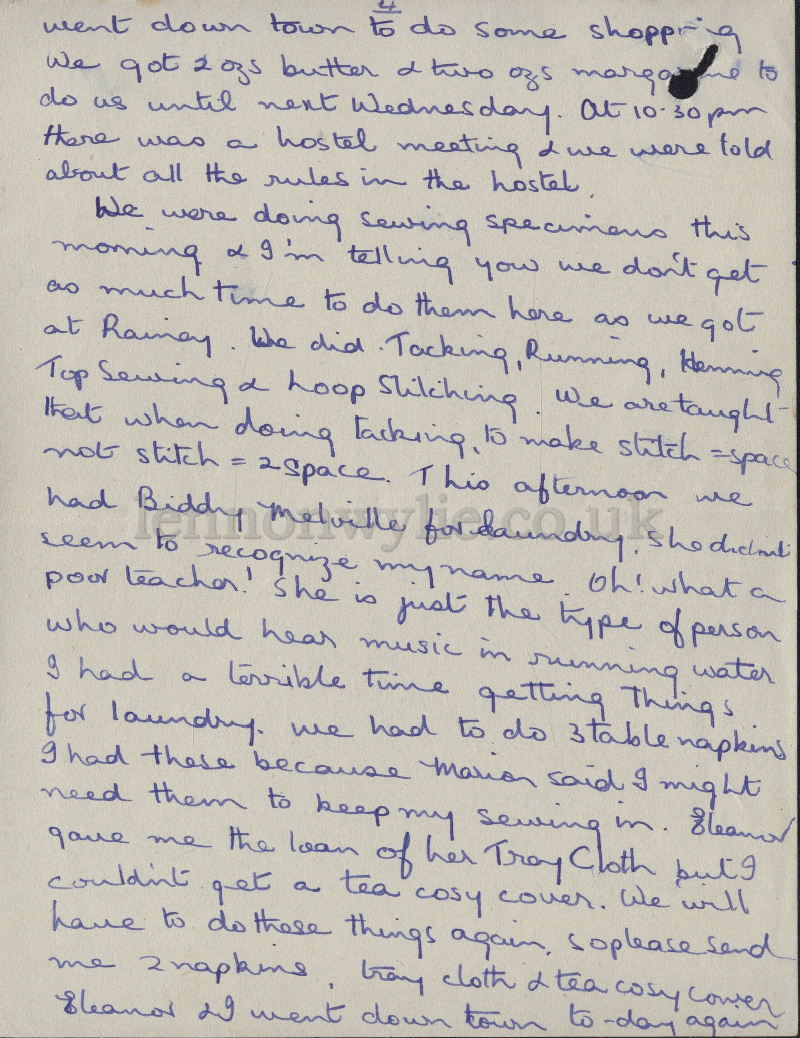 4
went down town to do some shopping
We got 2 ozs butter & two ozs margarine to
do us until next Wednesday. At 10-30 pm
there was a hostel meeting & we were told
about all the rules in the hostel.
We were doing sewing specimens this
morning & I'm telling you we don't get
as much time to do them here as we got
at Rainey. We did Tacking, Running, Hemming
Top Sewing & Loop Stitching. We are taught
that when doing tacking, to make stitch = space
not stitch = 2 space. This afternoon we
had Biddy Melville for laundry. She didn't
seem to recognize my name. Oh! what a
poor teacher! She is just the type of person
who would hear music in running water
I had a terrible time getting things
for laundry. We had to do 3 table napkins
I had these because Marion said I might
need them to keep my sewing in. Eleanor
gave me the loan of her Tray Cloth but I
couldn't get a tea cosy cover. We will
have to do these things again, so please send
me 2 napkins, tray cloth & tea cosy cover
Eleanor & I went down town to-day again
lennonwylie.co.uk